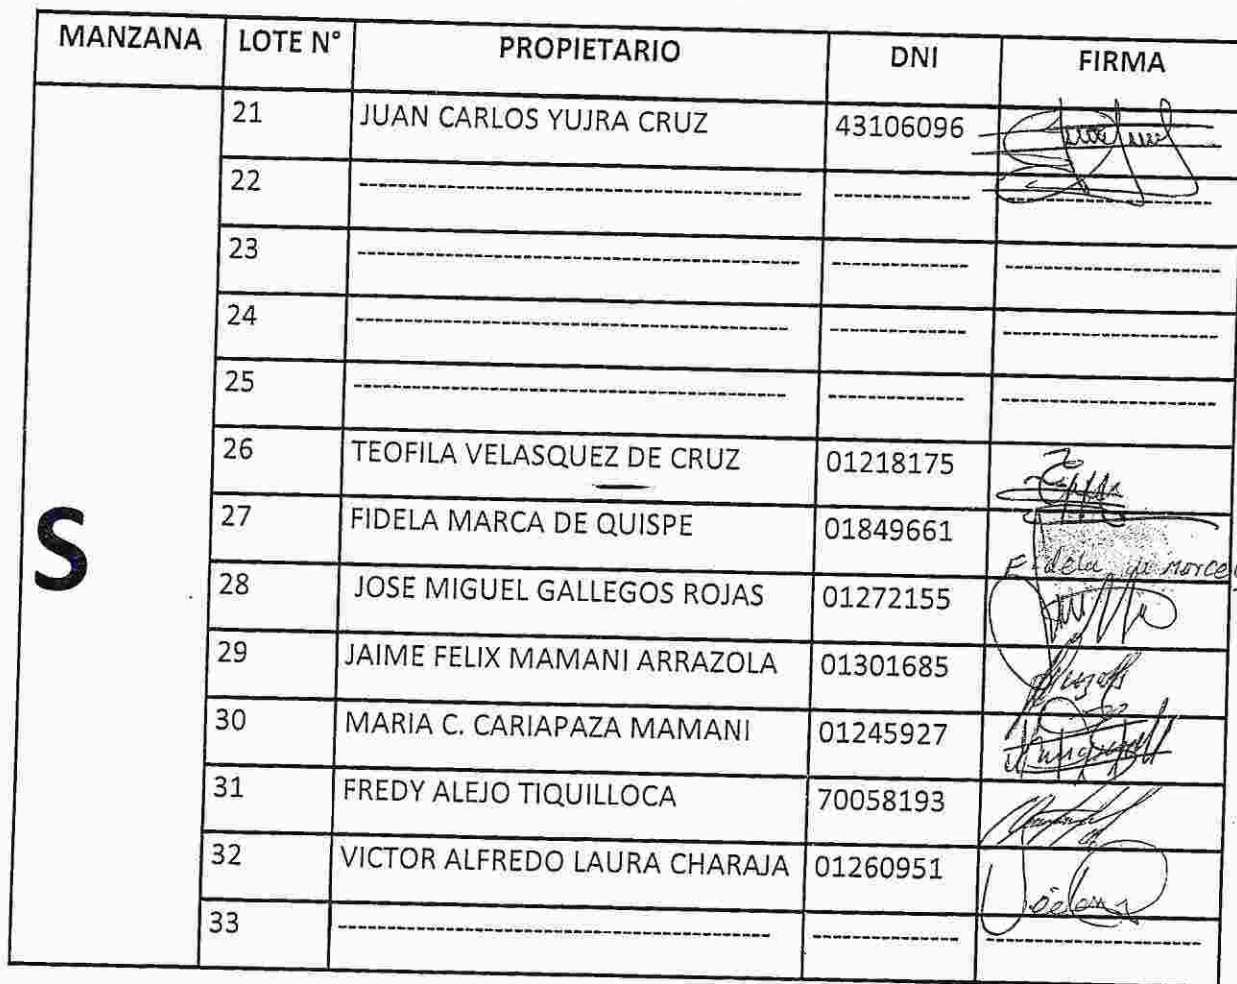 MANZANA LOTE N° PROPIETARIO DNI FIRMA
21 JUAN CARLOS YUJRA CRUZ 43106096
22 ---------- ---------- ----------
23 ---------- ---------- ----------
24 ---------- ---------- ----------
25 ---------- ---------- ----------
26 TEOFILA VELASQUEZ DE CRUZ 01218175
S
27 FIDELA MARCA DE QUISPE 01849661 Fidela
28 JOSE MIGUEL GALLEGOS ROJAS 01272155
29 JAIME FELIX MAMANI ARRAZOLA 01301685
30 MARIA C. CARIAPAZA MAMANI 01245927
31 FREDY ALEJO TIQUILLOCA 70058193
32 VICTOR ALFREDO LAURA CHARAJA 01260951
33 ---------- ---------- ----------